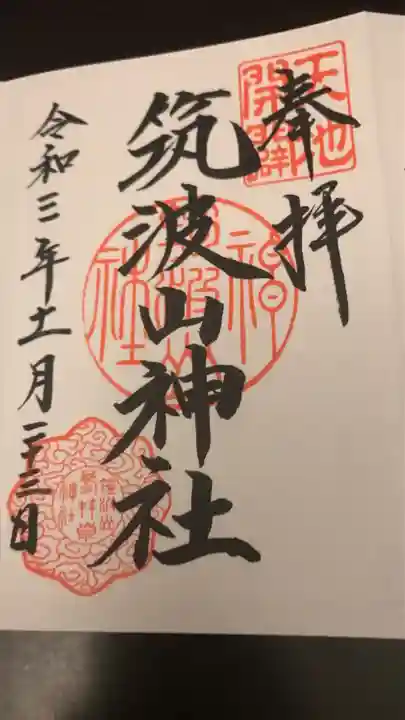 奉拝
天地
開闢
筑波山神社
令和三年十一月二十三日